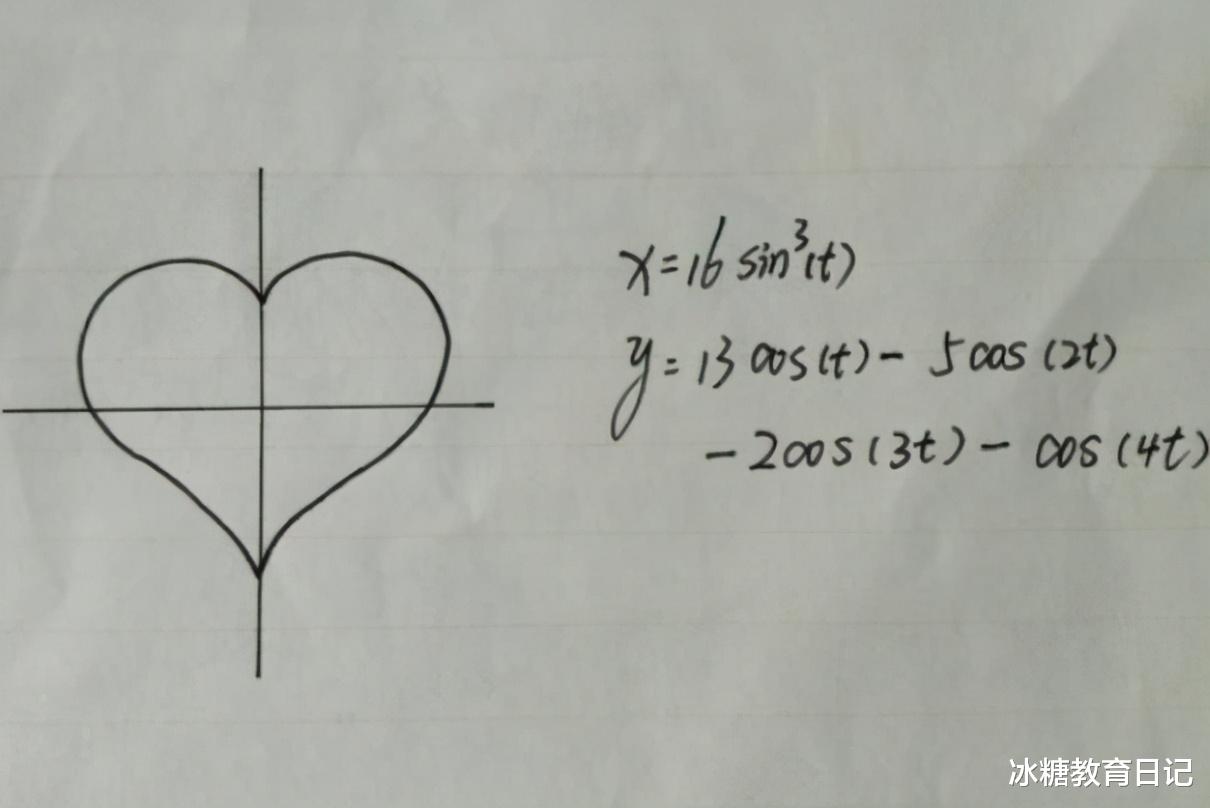 x=16 sin³(t)
y=13 cos(t) - 5 cos (2t)
- 2cos (3t) - cos (4t)
冰糖教育日记